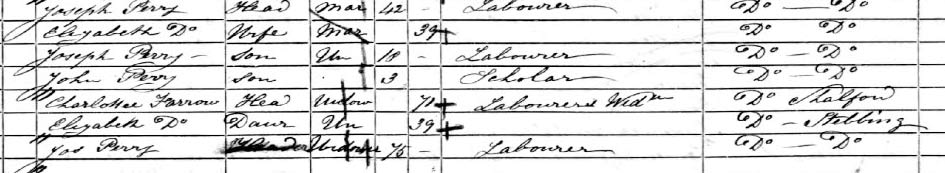 Joseph Perry Head Mar 42 Labourer Do — Do
Elizabeth Do Wife Mar 39 Do — Do
Joseph Perry Son Un 18 Labourer Do — Do
John Perry Son 3 Scholar Do — Do
Charlotte Farrow Hea Widow 71 Labourers Wid Do Shalford
Elizabeth Do Daur Un 39 Do — Stebbing
Jos Perry Widower 75 Labourer Do — Do